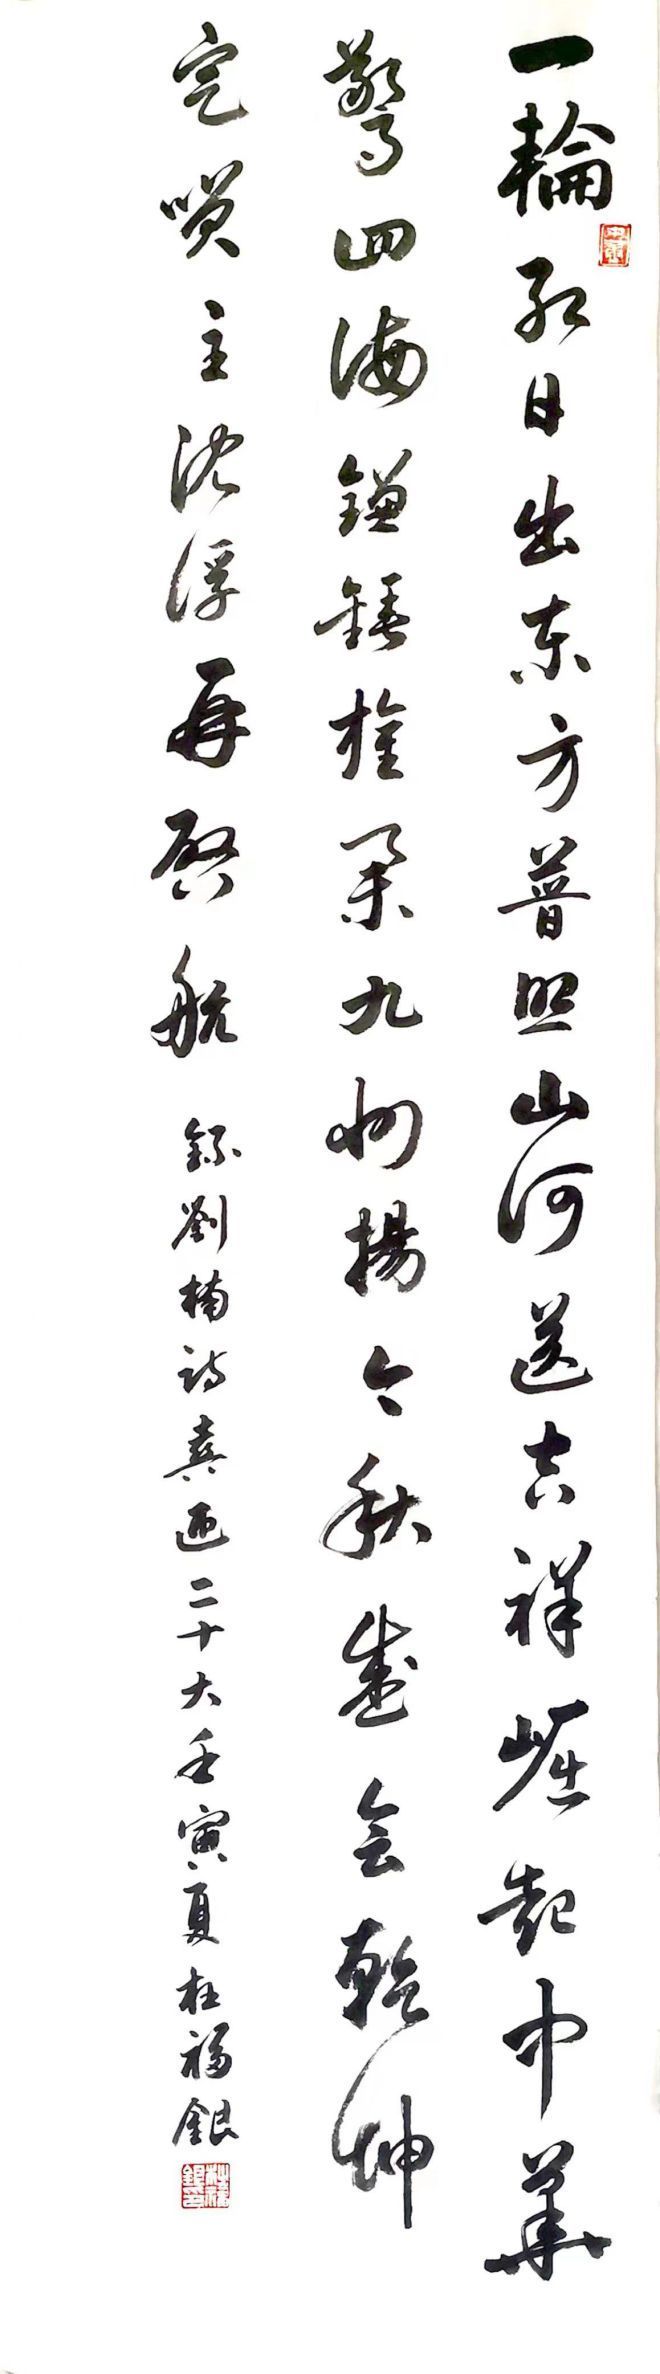 一輪紅日出东方普照山河送吉祥崛起中華
驚四海鎌錘九州揚今秋盛会乾坤
定咲主沈浮再啓航 錄劉楠詩喜迎二十大壬寅夏杜福銀
杜福銀印